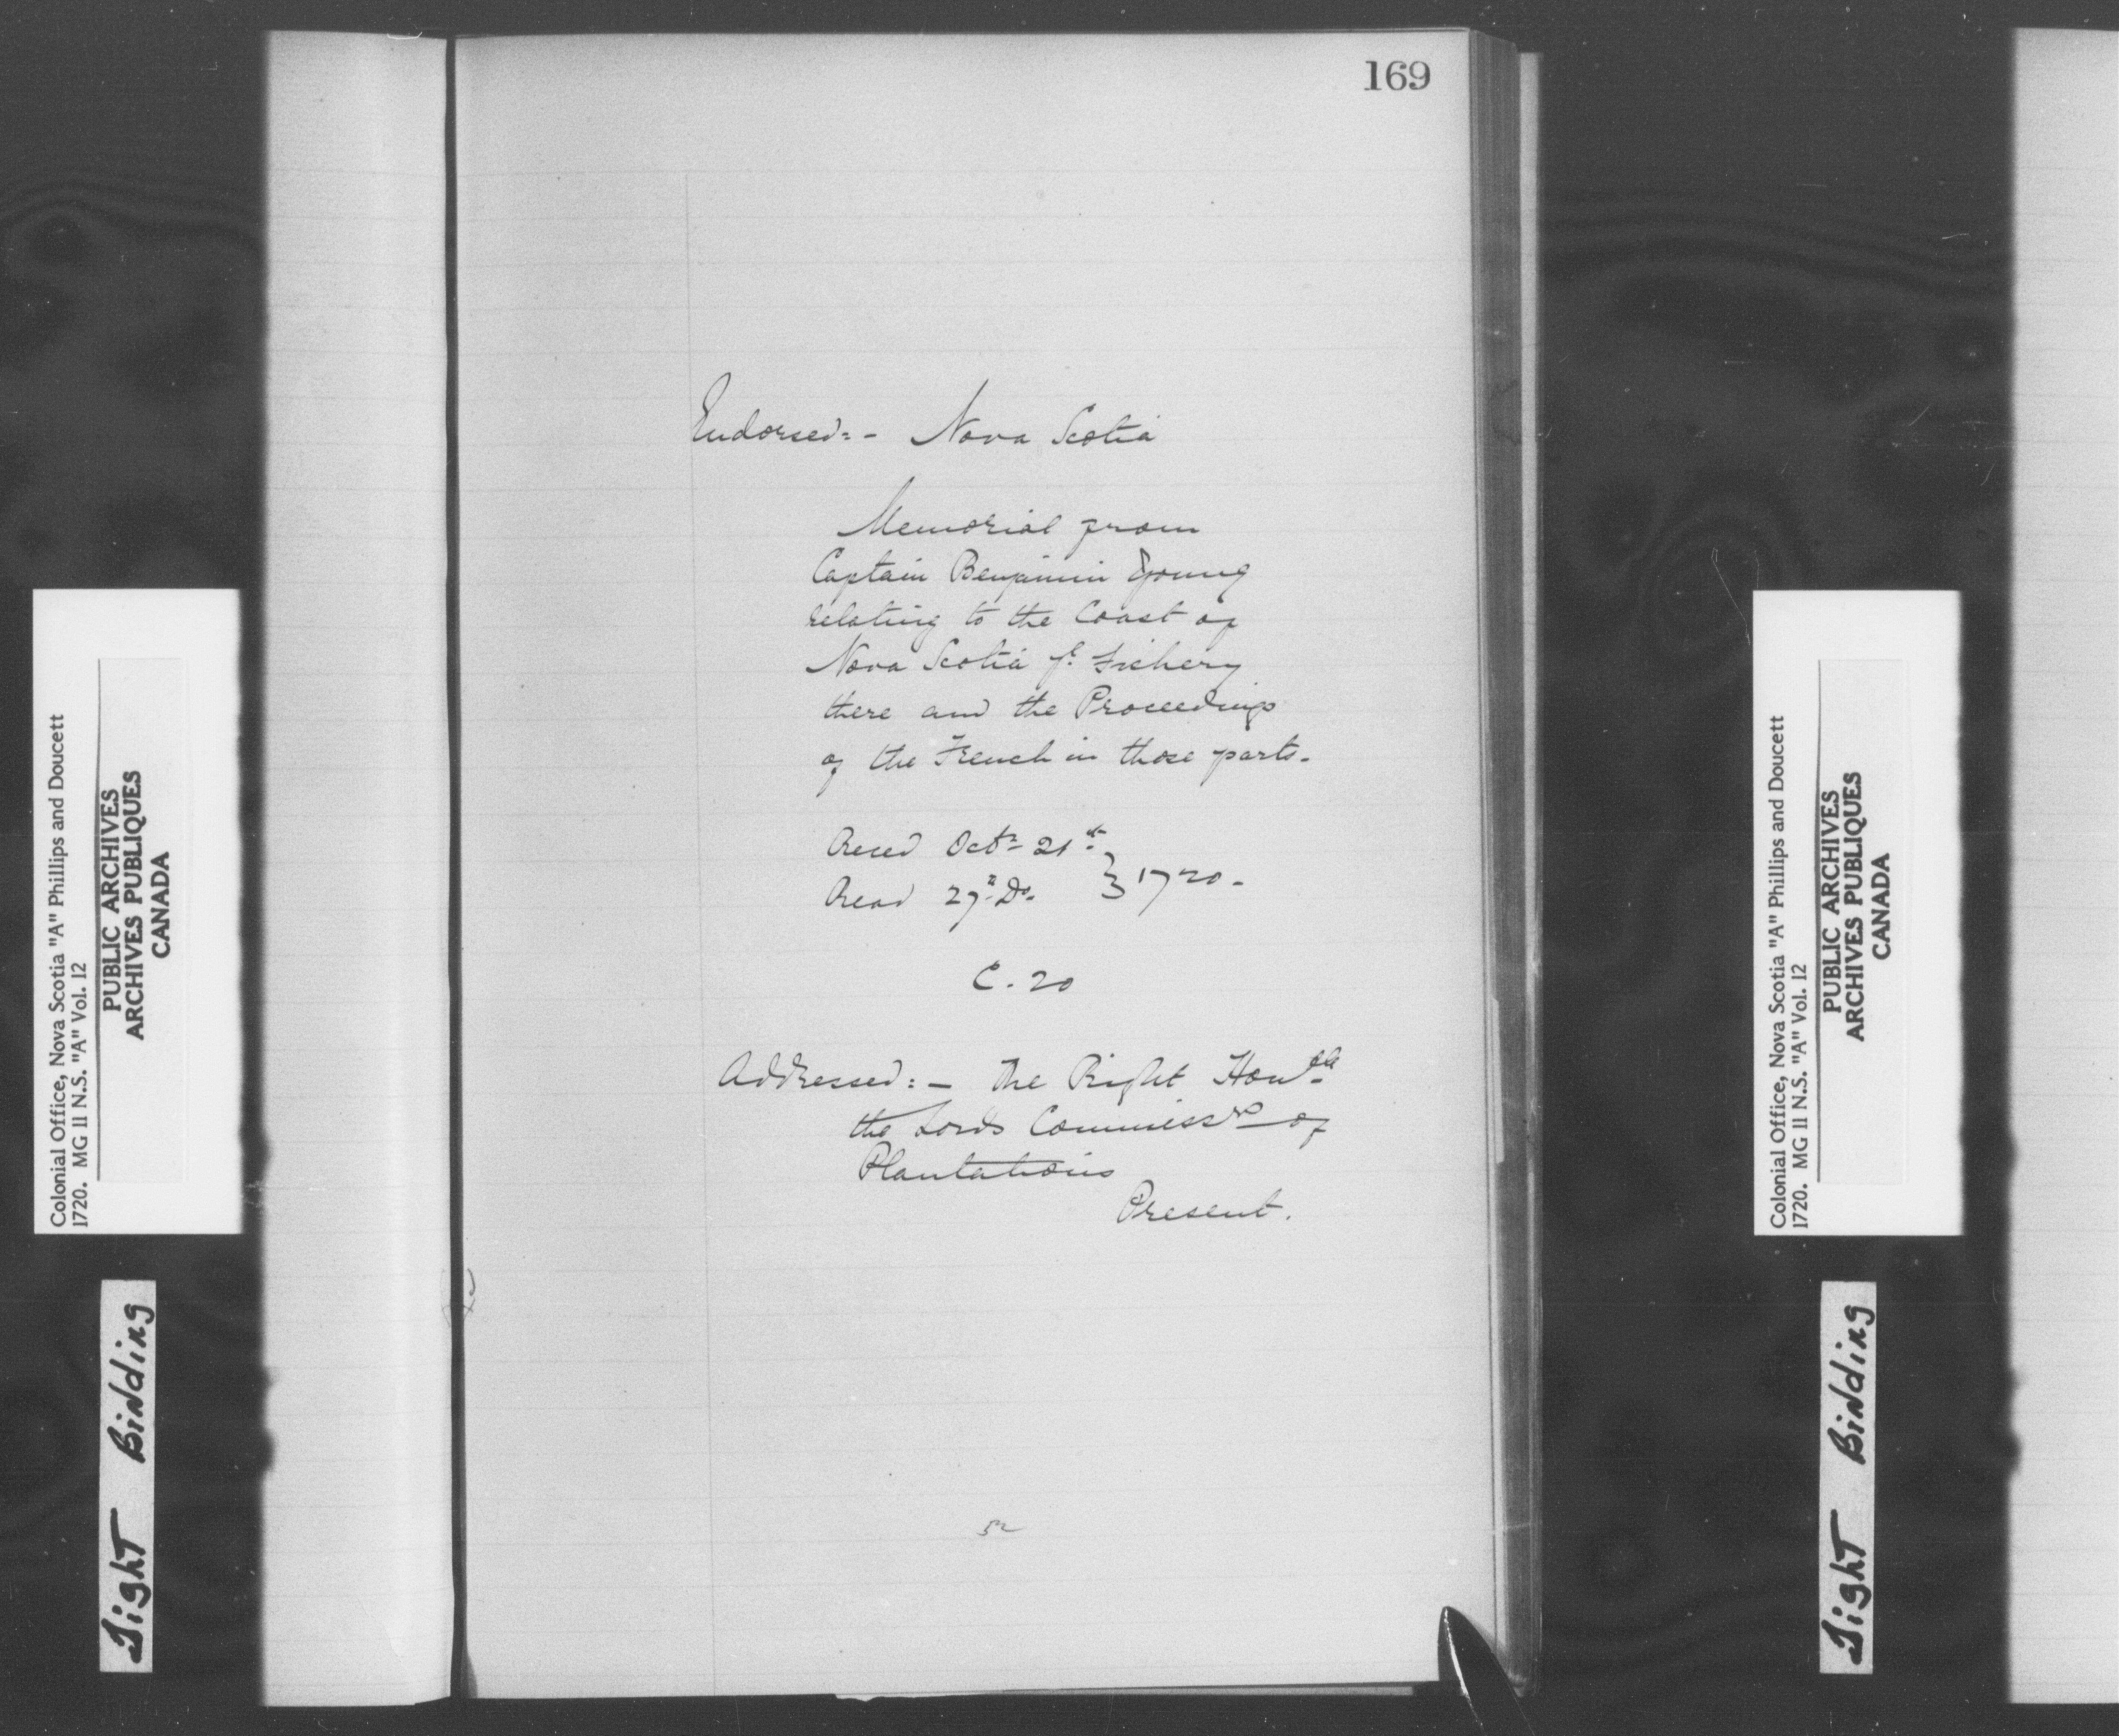 169
Endorsed:- Nova Scotia
Memorial from
Captain Benjamin Young
relating to the Coast of
Nova Scotia ye Fishery
there and the Proceedings
of the French in those parts.
Reced Octr 21st
Read 27th Do. } 1720.
C. 20
Addressed:- The Right Honble
the Lords Commissrs of
Plantations
Present.
52
Colonial Office, Nova Scotia "A" Phillips and Doucett
1720. MG 11 N.S. "A" Vol. 12
PUBLIC ARCHIVES
ARCHIVES PUBLIQUES
CANADA
Tight Binding
Colonial Office, Nova Scotia "A" Phillips and Doucett
1720. MG 11 N.S. "A" Vol. 12
PUBLIC ARCHIVES
ARCHIVES PUBLIQUES
CANADA
Tight Binding